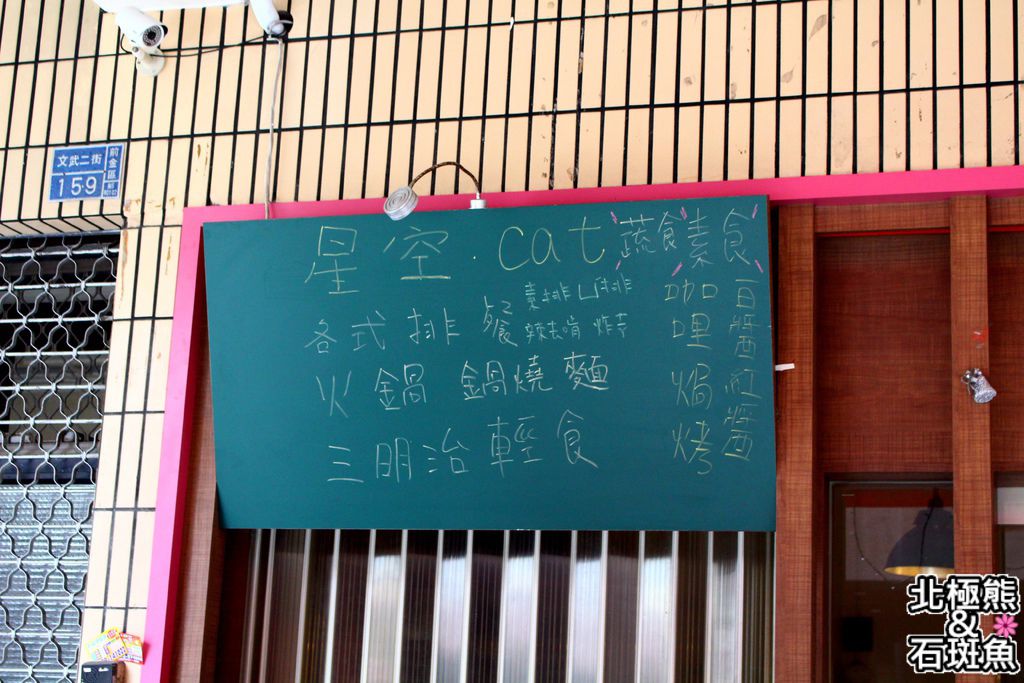 文武二街
159
前金區
星空.cat 蔬食素食
各式排餐 素排 山排
辣去啃 炸芋
火鍋 鍋燒麵
三明治 輕食
咖哩焗烤
百醬紅醬
北極熊
&
石斑魚